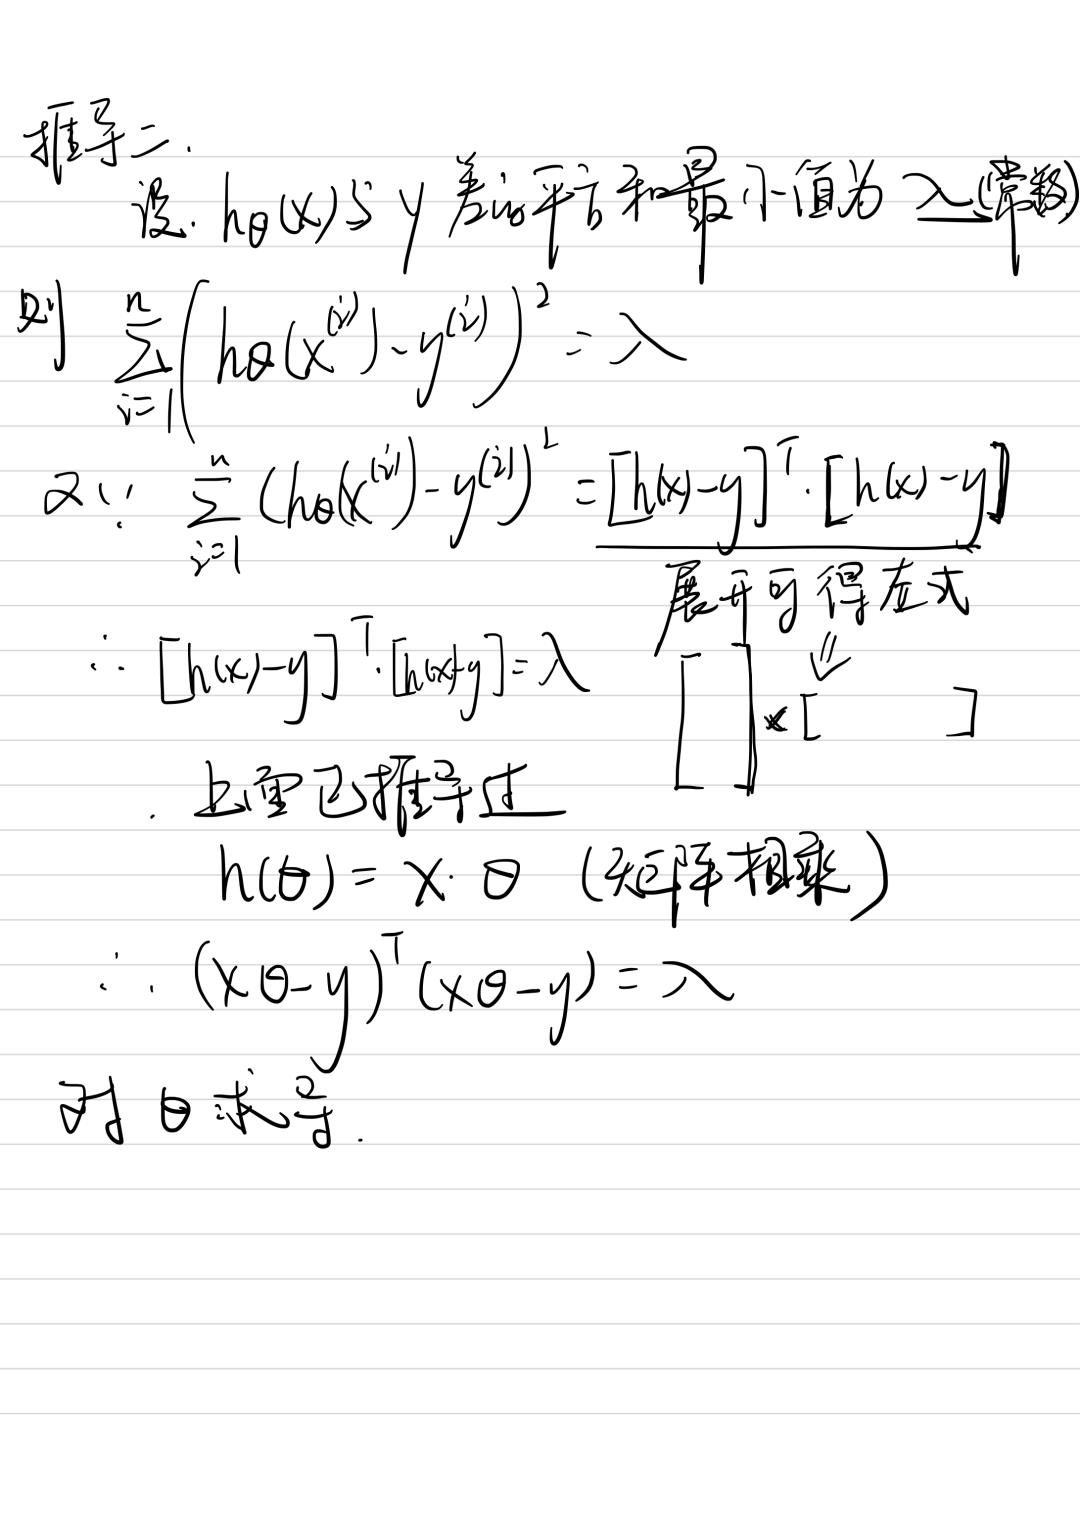 推导二.
设. hθ(x)与 y 差的平方和最小值为 λ(常数)
则 ∑_{i=1}^{n} (hθ(x^{(i)}) - y^{(i)})^2 = λ
又∵ ∑_{i=1}^{n} (hθ(x^{(i)}) - y^{(i)})^2 = [h(x)-y]^T · [h(x)-y]
展开可得左式
∴ [h(x)-y]^T · [h(x)-y] = λ
[ ] × [ ]
上面已推导过
h(θ) = x · θ (矩阵相乘)
∴ (xθ-y)^T (xθ-y) = λ
对 θ 求导.